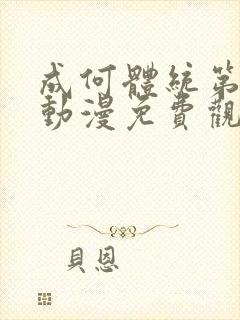 成何體統第
動漫免費觀
貝恩